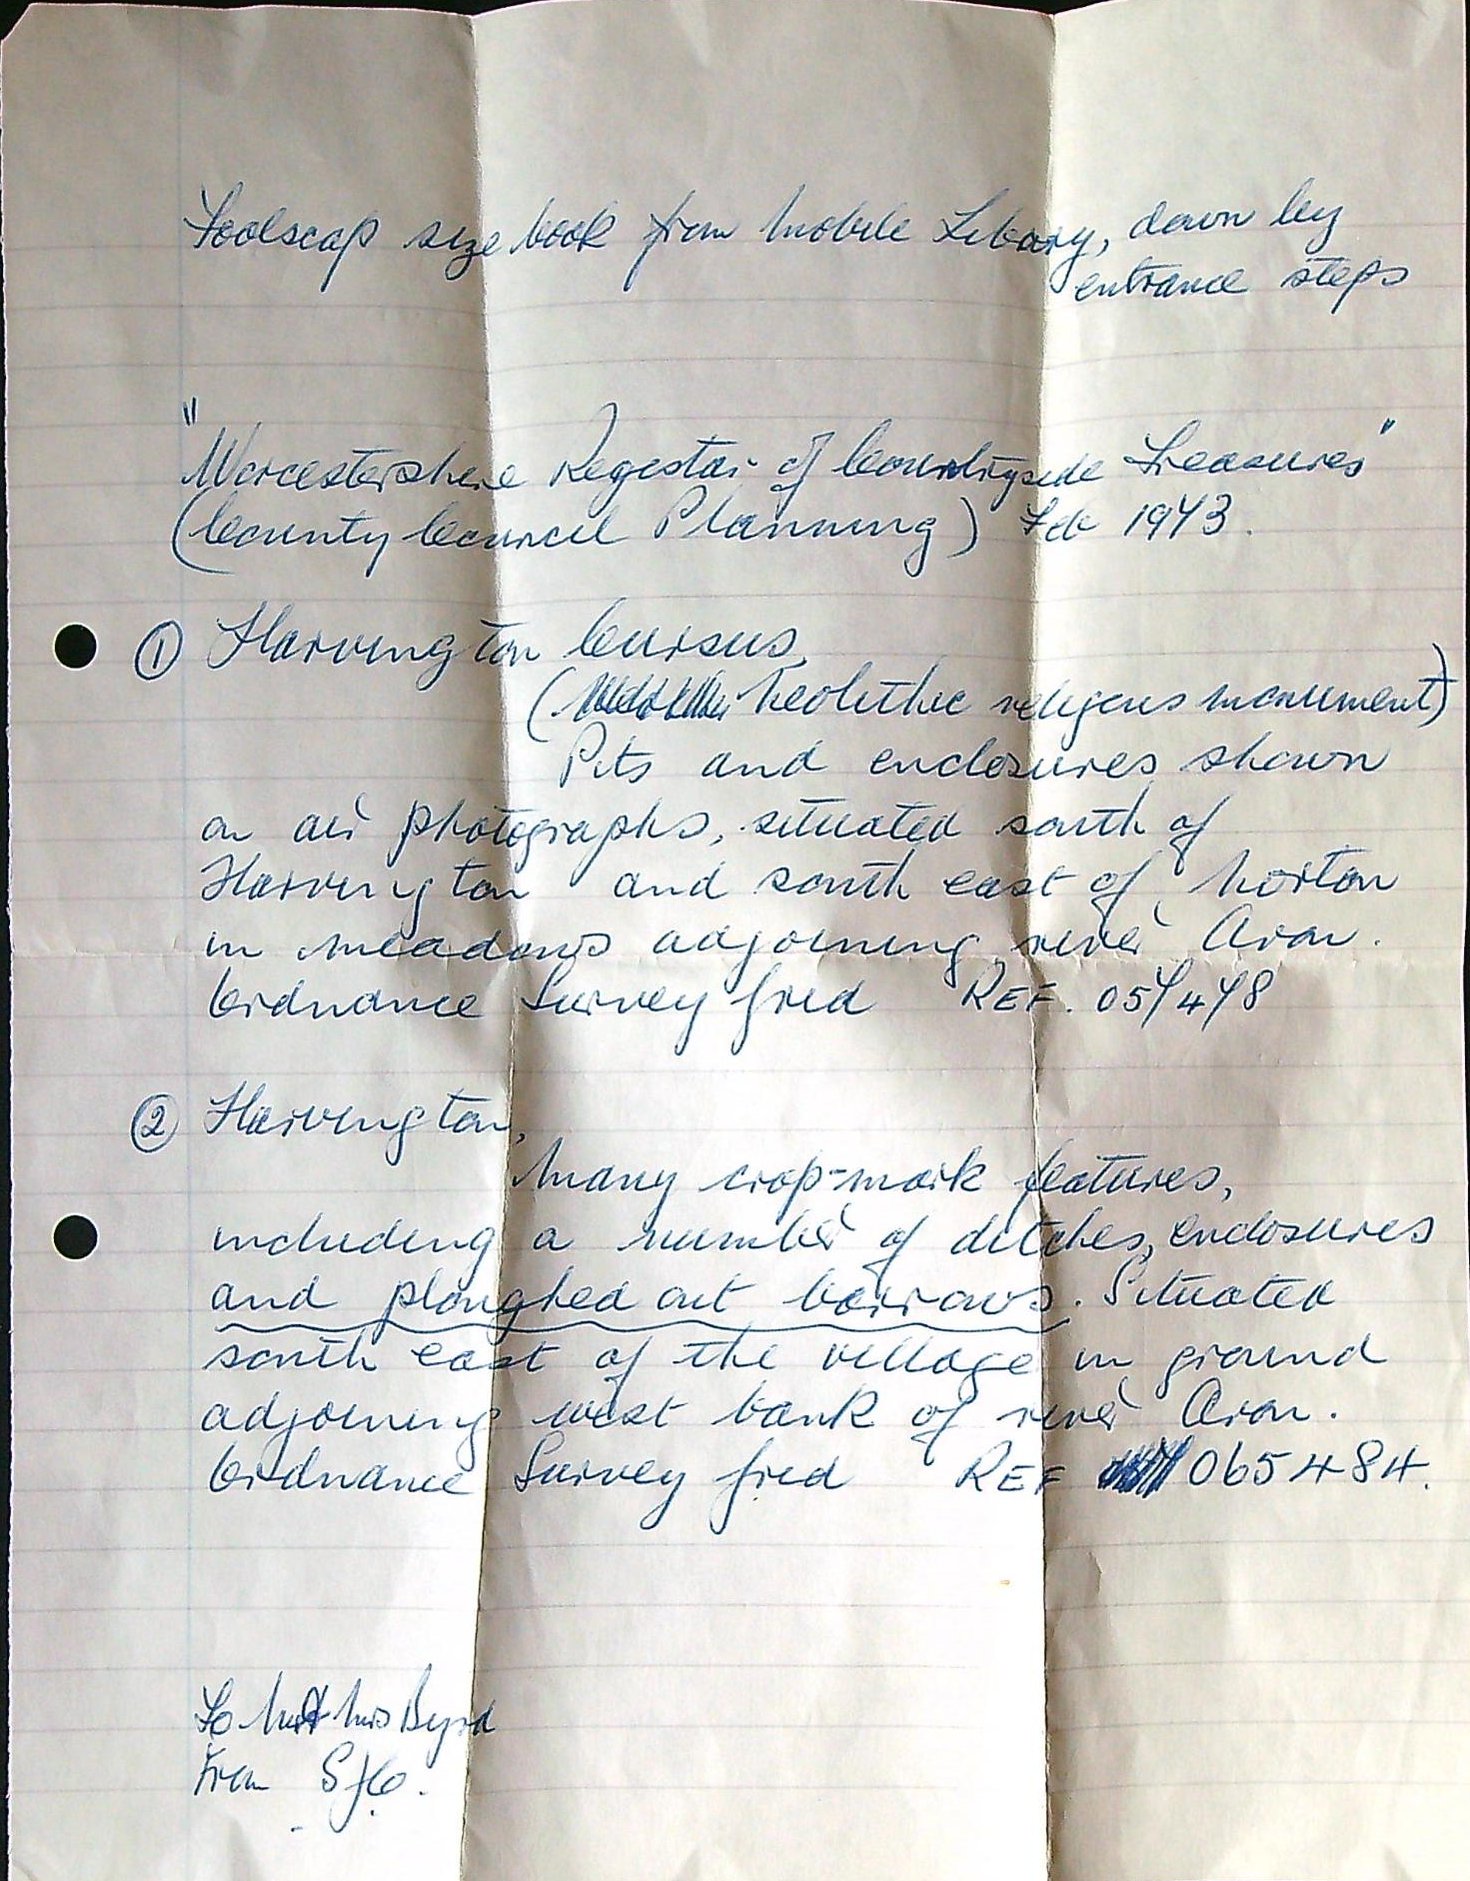 Foolscap size book from Mobile Library, down by
entrance steps
"Worcestershire Registar of Countryside Treasures"
(County Council Planning) Feb 1973.
① Harvington Cursus,
(Neolithic religous monument)
Pits and enclosures shown
on air photographs, situated south of
Harvington and south east of Norton
in meadows adjoining river Avon.
Ordnance Survey Grid REF. 057478
② Harvington,
Many crop-mark features,
including a number of ditches, enclosures
and ploughed out barrows. Situated
south east of the village in ground
adjoining west bank of river Avon.
Ordnance Survey Grid REF 065484.
To Mr & Mrs Byrd
From